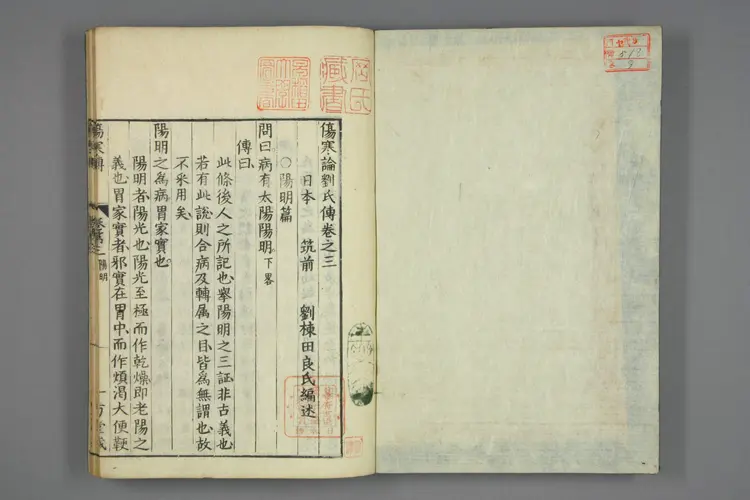 傷寒論劉氏傳卷之三
日本 筑前 劉棟田良氏編述
○陽明篇
問曰病有太陽陽明下畧
傳曰
此條後人之所記也擧陽明之三証非古義也
若有此說則合病及轉属之目皆為無謂也故
不采用矣
陽明之為病胃家實也
陽明者陽光也陽光至極而作乾燥即老陽之
義也胃家實者邪實在胃中而作煩渴大便鞕
傷寒傳
陽明
藏書